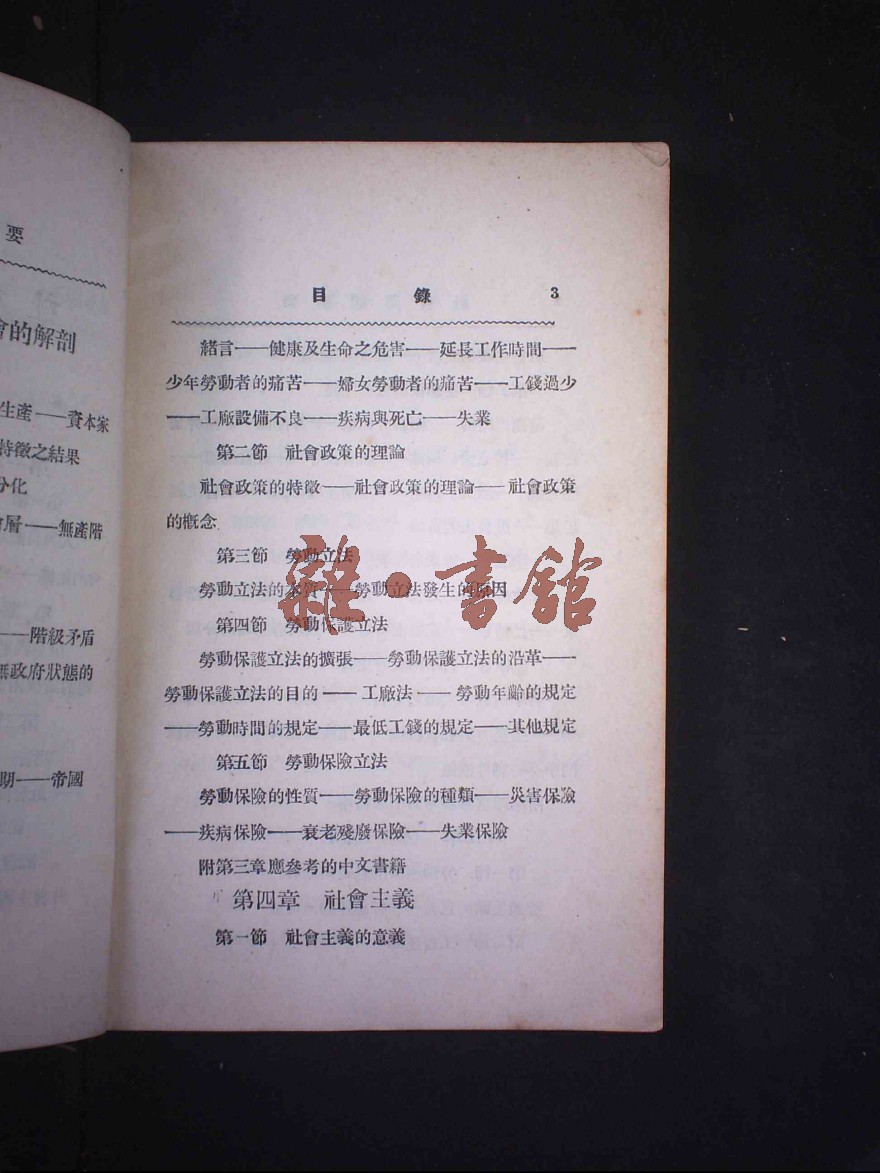 要
會的解剖
生產——資本家
特徵之結果
分化
會層——無產階
——階級矛盾
無政府狀態的
期——帝國
目錄 3
緒言——健康及生命之危害——延長工作時間——
少年勞動者的痛苦——婦女勞動者的痛苦——工錢過少
——工廠設備不良——疾病與死亡——失業
第二節 社會政策的理論
社會政策的特徵——社會政策的理論——社會政策
的概念
第三節 勞動立法
勞動立法的本質——勞動立法發生的原因
第四節 勞動保護立法
勞動保護立法的擴張——勞動保護立法的沿革——
勞動保護立法的目的——工廠法——勞動年齡的規定
——勞動時間的規定——最低工錢的規定——其他規定
第五節 勞動保險立法
勞動保險的性質——勞動保險的種類——災害保險
——疾病保險——衰老殘廢保險——失業保險
附第三章應參考的中文書籍
第四章 社會主義
第一節 社會主義的意義
雜·書館